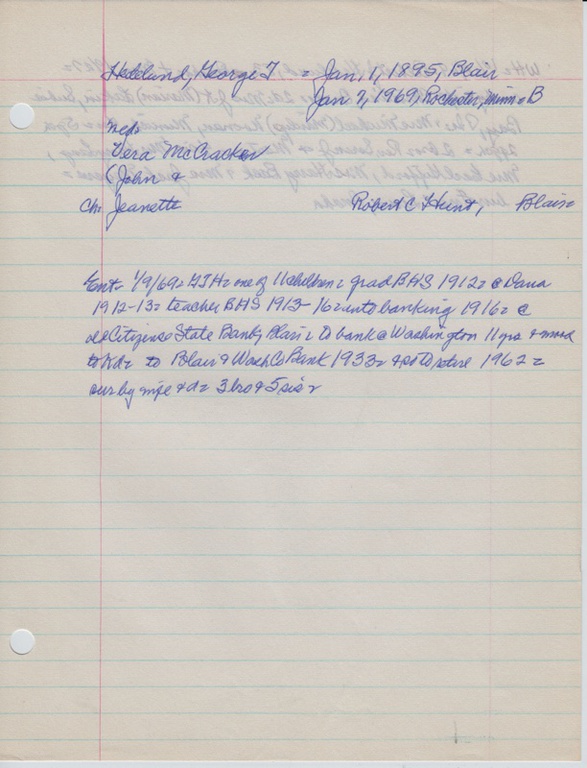 Hedelund, George T = Jan, 1, 1895, Blair
Jan 7, 1969, Rochester, Minn = B
Vera McCracken
(John &
Ch: Jeanette Robert C Hunt, Blair=
Ent= 1/9/69= GTH= one of 11 children= grad BHS 1912= @ Dana
1912-13= teacher BHS 1913-16= into banking 1916= @
Citizens State Bank, Blair= to bank @ Washington 11 yrs &
to = to Blair & Wash Co Bank 1933= & so to retire 1962=
sur by wife & d= 3 bro & 5 sis=